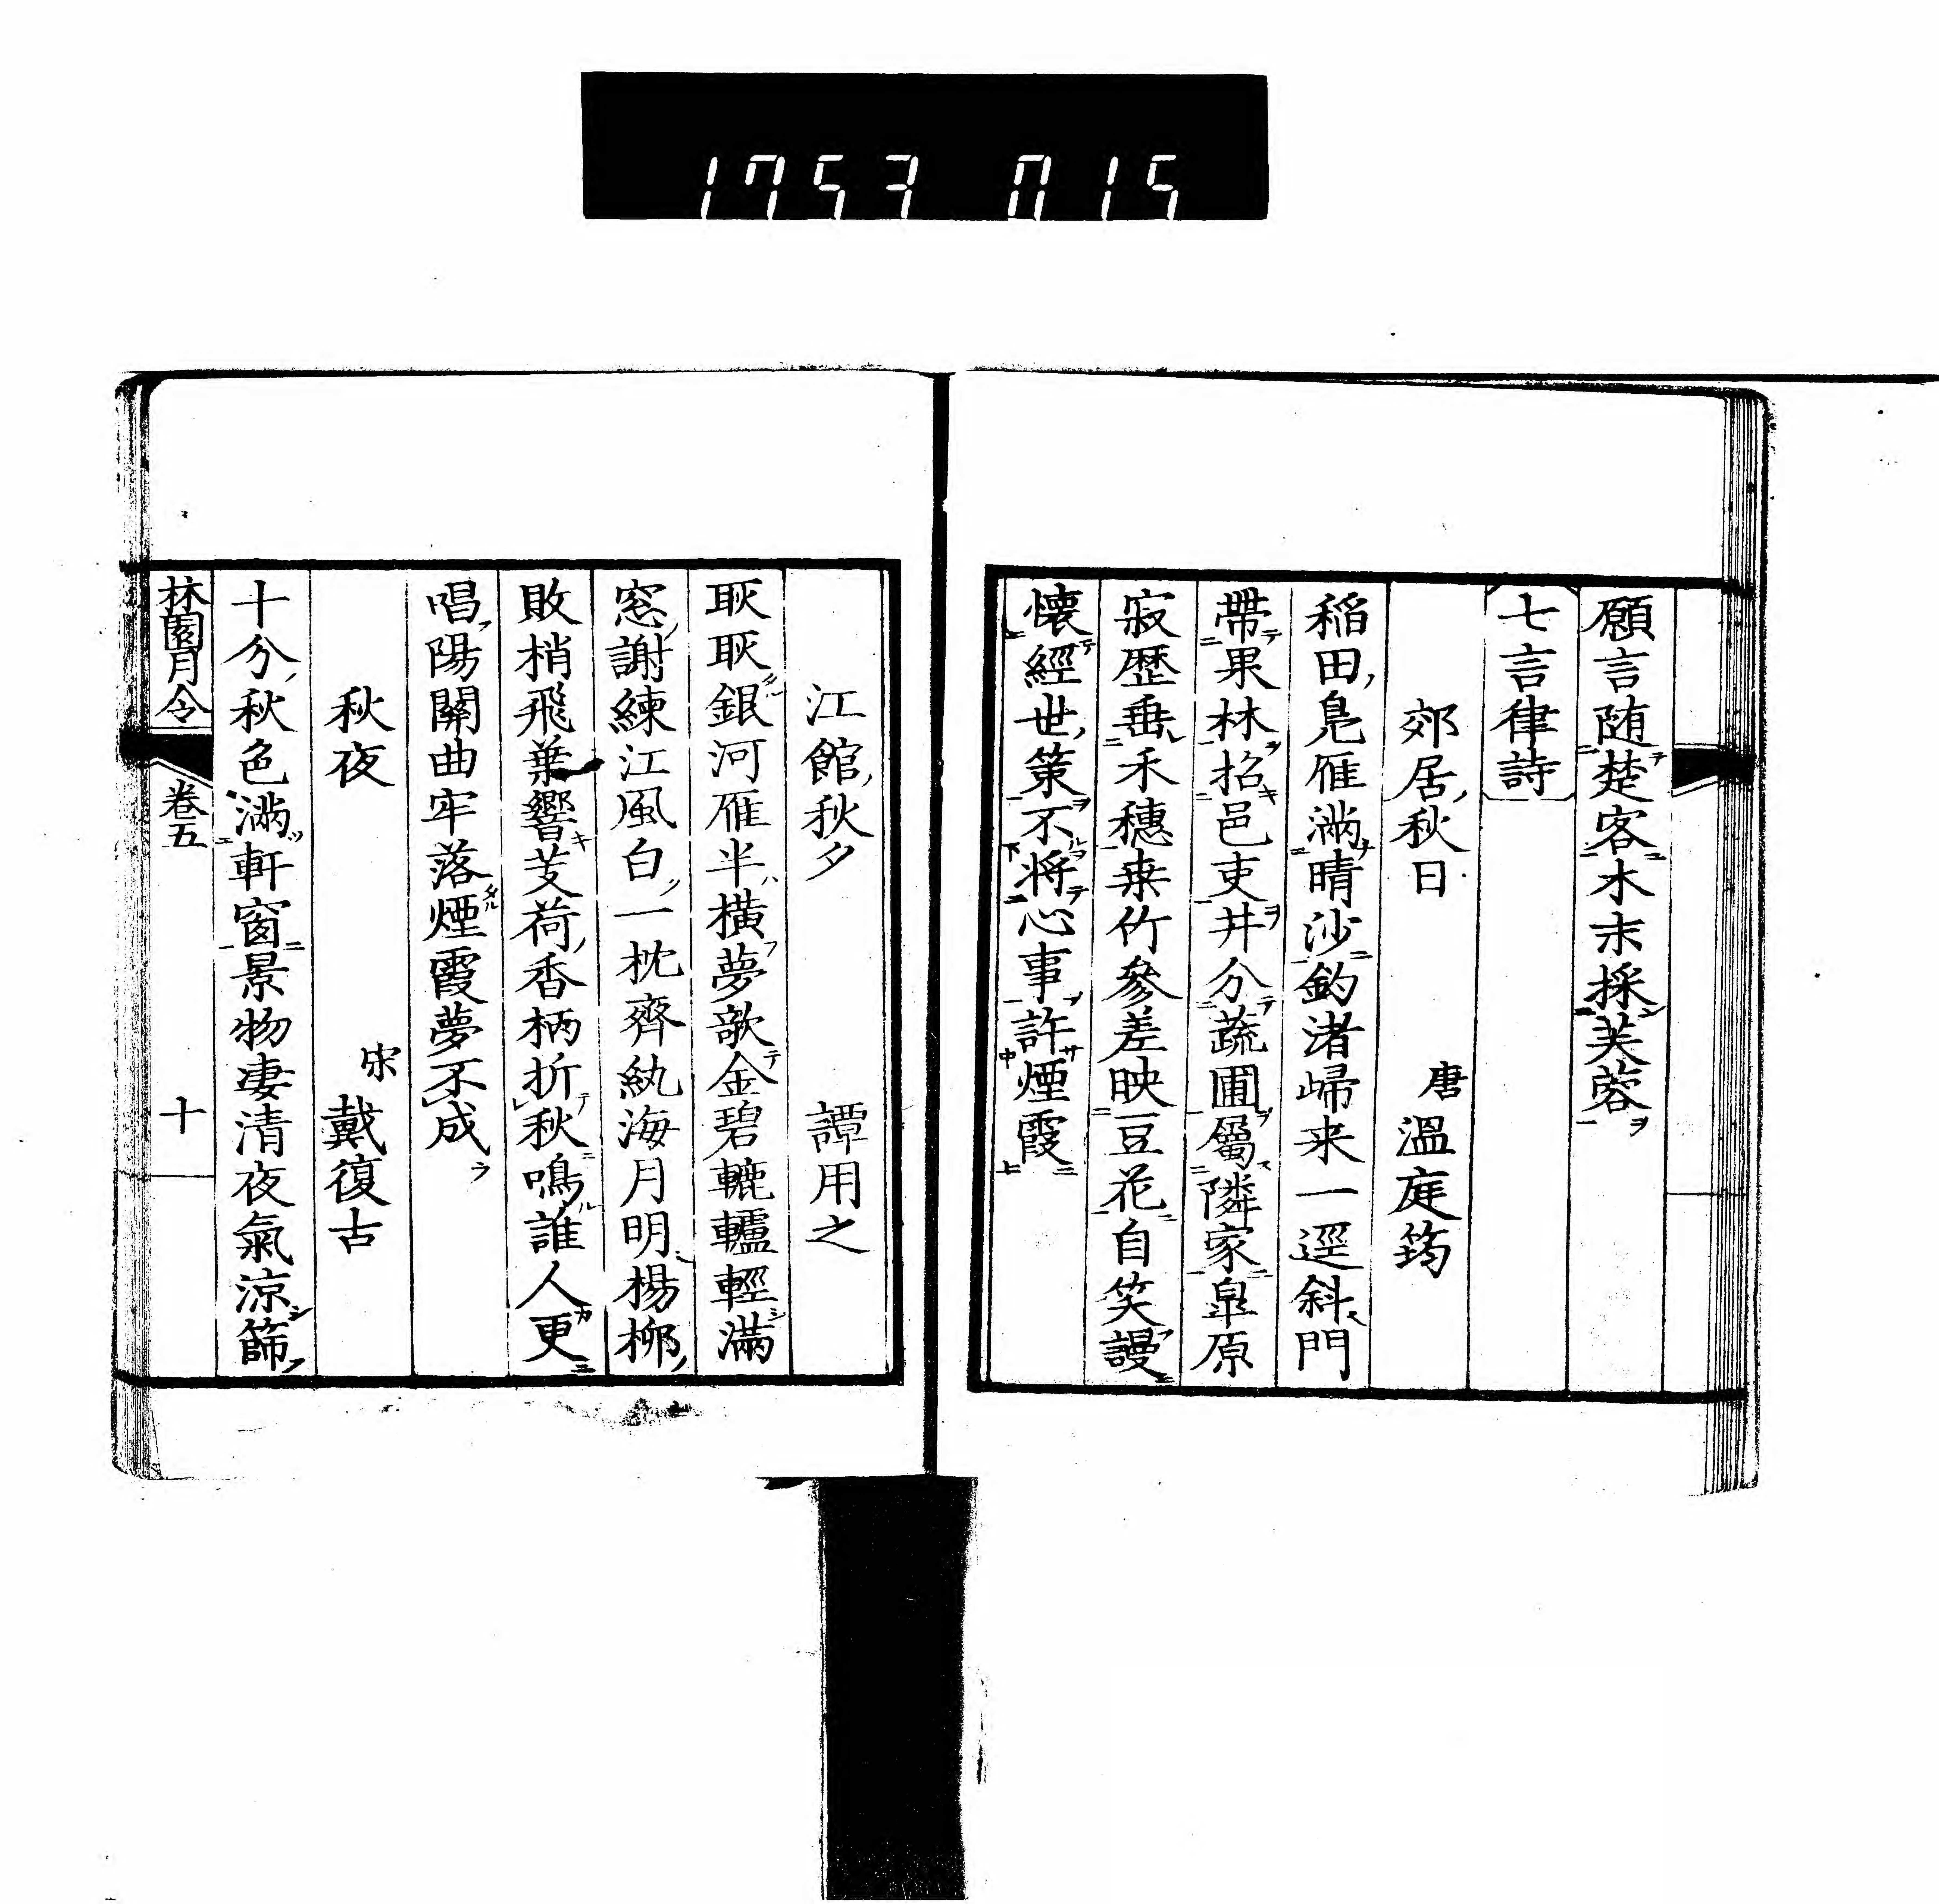 1753 015
願言随楚客木末採芙蓉
七言律詩
郊居秋日 唐 溫庭筠
稲田鳧雁滿晴沙釣渚歸来一逕斜門
帶果林招邑吏井分蔬圃屬隣家皐原
寂歴垂禾穗桒竹參差映豆花自笑謾
懷經世策不將心事許煙霞
江館秋夕 譚用之
耿耿銀河雁半橫夢欹金碧轆轤輕滿
窓謝練江風白一枕齊紈海月明楊柳
敗梢飛葉響芰荷香柄折秋鳴誰人更
唱陽關曲牢落煙霞夢不成
秋夜 宋 戴復古
十分秋色滿軒窗景物凄清夜氣涼篩
林園月令 卷五 十